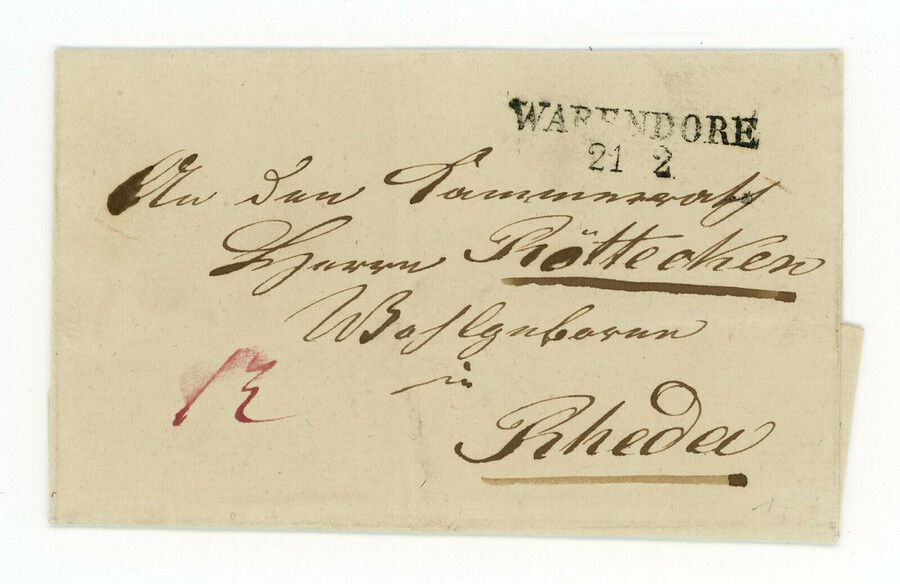 WARENDORF
21 2
An den Cammerrath
Herrn Röttecken
Wohlgeboren
in
Rheda